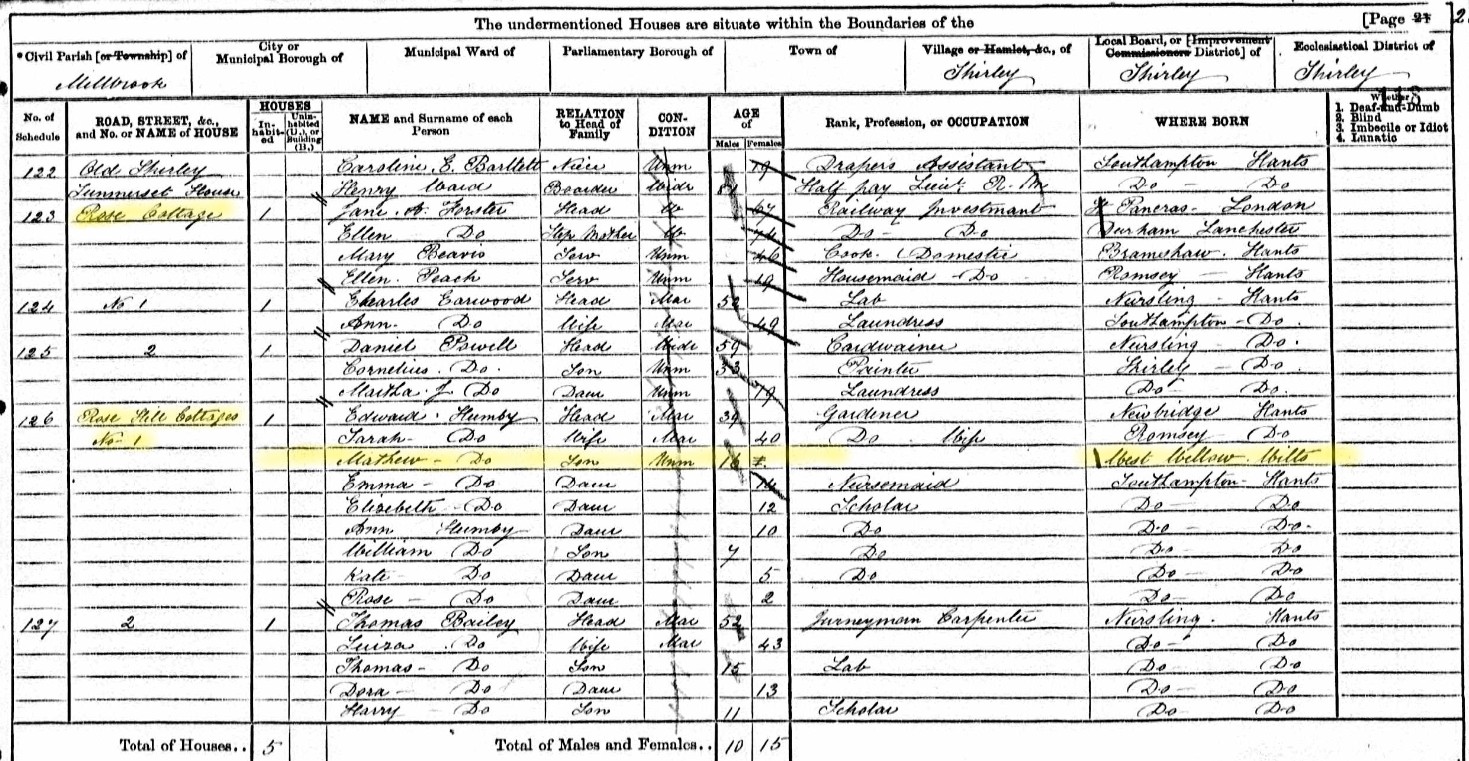 The undermentioned Houses are situate within the Boundaries of the [Page 21 2
Civil Parish [or Township] of City or Municipal Borough of Municipal Ward of Parliamentary Borough of Town of Village or Hamlet, &c., of Local Board, or [Improvement Commissioners District] of Ecclesiastical District of
Millbrook Shirley Shirley Shirley
No. of Schedule ROAD, STREET, &c., and No. or NAME of HOUSE HOUSES In-habit-ed Unin-habited (U.), or Building (B.) NAME and Surname of each Person RELATION to Head of Family CON-DITION AGE of Males Females Rank, Profession, or OCCUPATION WHERE BORN Whether 1. Deaf-and-Dumb 2. Blind 3. Imbecile or Idiot 4. Lunatic
122 Old Shirley Caroline E. Bartlett Niece Unm 19 Drapers Assistant Southampton Hants
House Henry Ward Boarder Widr Half pay Lieut. R. M Do Do
123 Rose Cottage 1 Jane A. Forster Head W 67 Railway Investment St Pancras London
Ellen Do Step Mother W 74 Do Do Durham Lanchester
Mary Beavis Serv Unm 46 Cook Domestic Bramshaw Hants
Ellen Peach Serv Unm 19 Housemaid Do Romsey Hants
124 No 1 1 Charles Earwood Head Mar 52 Lab Nursling Hants
Ann Do Wife Mar 49 Laundress Southampton Do
125 2 1 Daniel Powell Head Widr 59 Cordwainer Nursling Do
Cornelius Do Son Unm 33 Painter Shirley Do
Martha J Do Daur Unm 19 Laundress Do Do
126 Rose Hill Cottages 1 Edward Humby Head Mar 39 Gardener Newbridge Hants
No. 1 Sarah Do Wife Mar 40 Do Wife Romsey Do
Mathew Do Son Unm 16 West Wellow Wilts
Emma Do Daur 14 Nursemaid Southampton Hants
Elizebeth Do Daur 12 Scholar Do Do
Ann Humby Daur 10 Do Do Do
William Do Son 7 Do Do Do
Kate Do Daur 5 Do Do Do
Rose Do Daur 2 Do Do
127 2 1 Thomas Bailey Head Mar 52 Journeyman Carpenter Nursling Hants
Luiza Do Wife Mar 43 Do Do
Thomas Do Son 15 Lab Do Do
Dora Do Daur 13 Do Do
Harry Do Son 11 Scholar Do Do
Total of Houses.. 5 Total of Males and Females.. 10 15